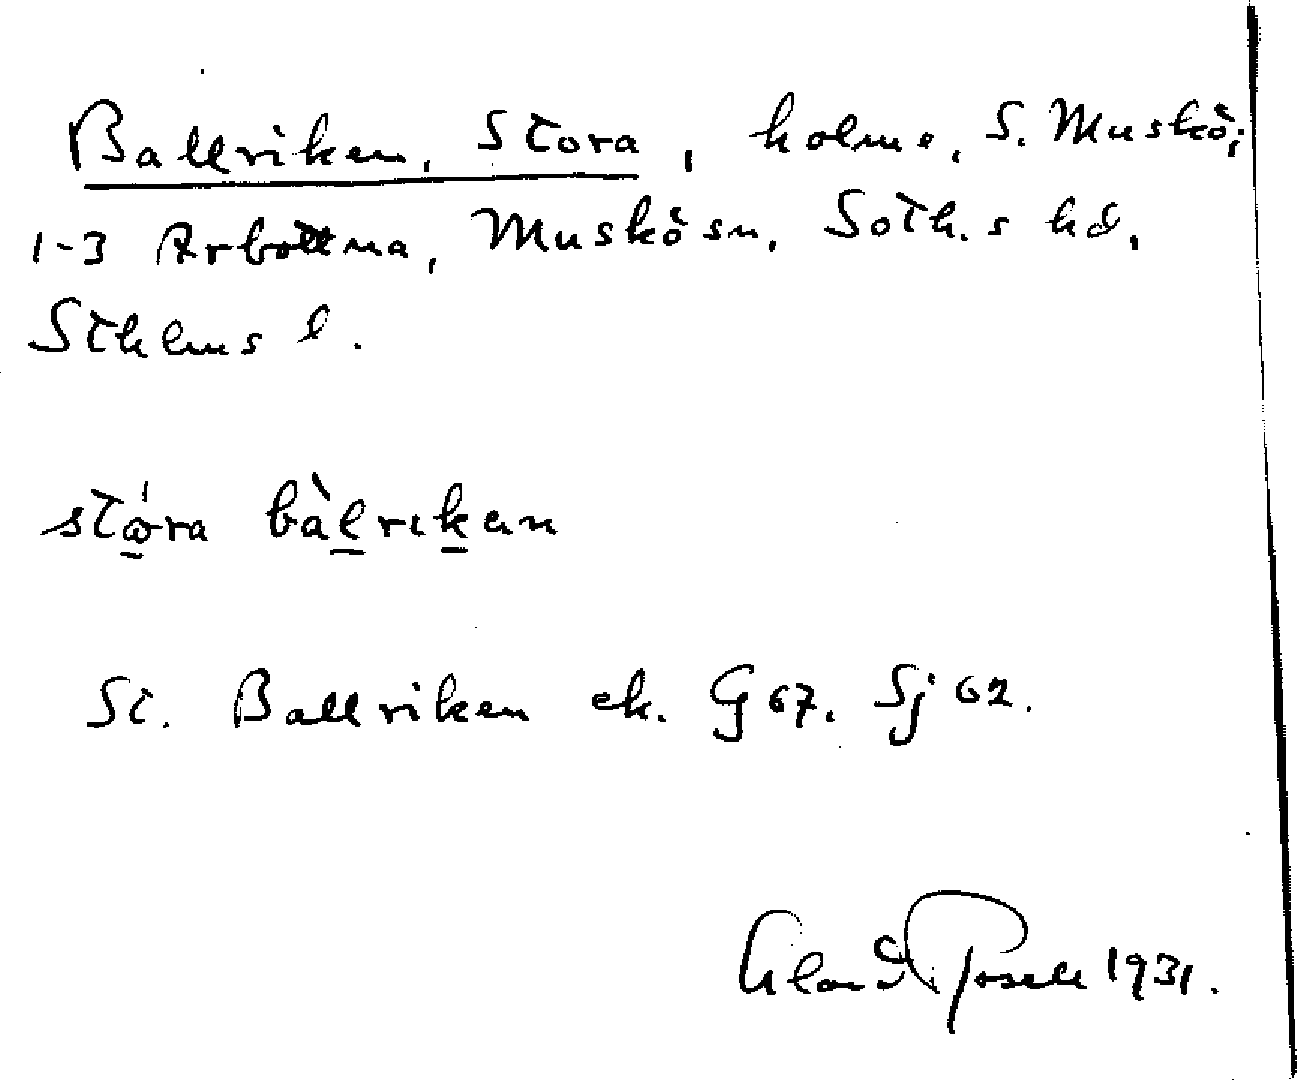 Ballriken, Stora, holme, S. Muskö;
1-3 Arbottna, Muskö sn, Soth.s hd,
Sthlms l.
stora bàlriken
St. Ballriken ek. G 67. Sj 62.
1931.